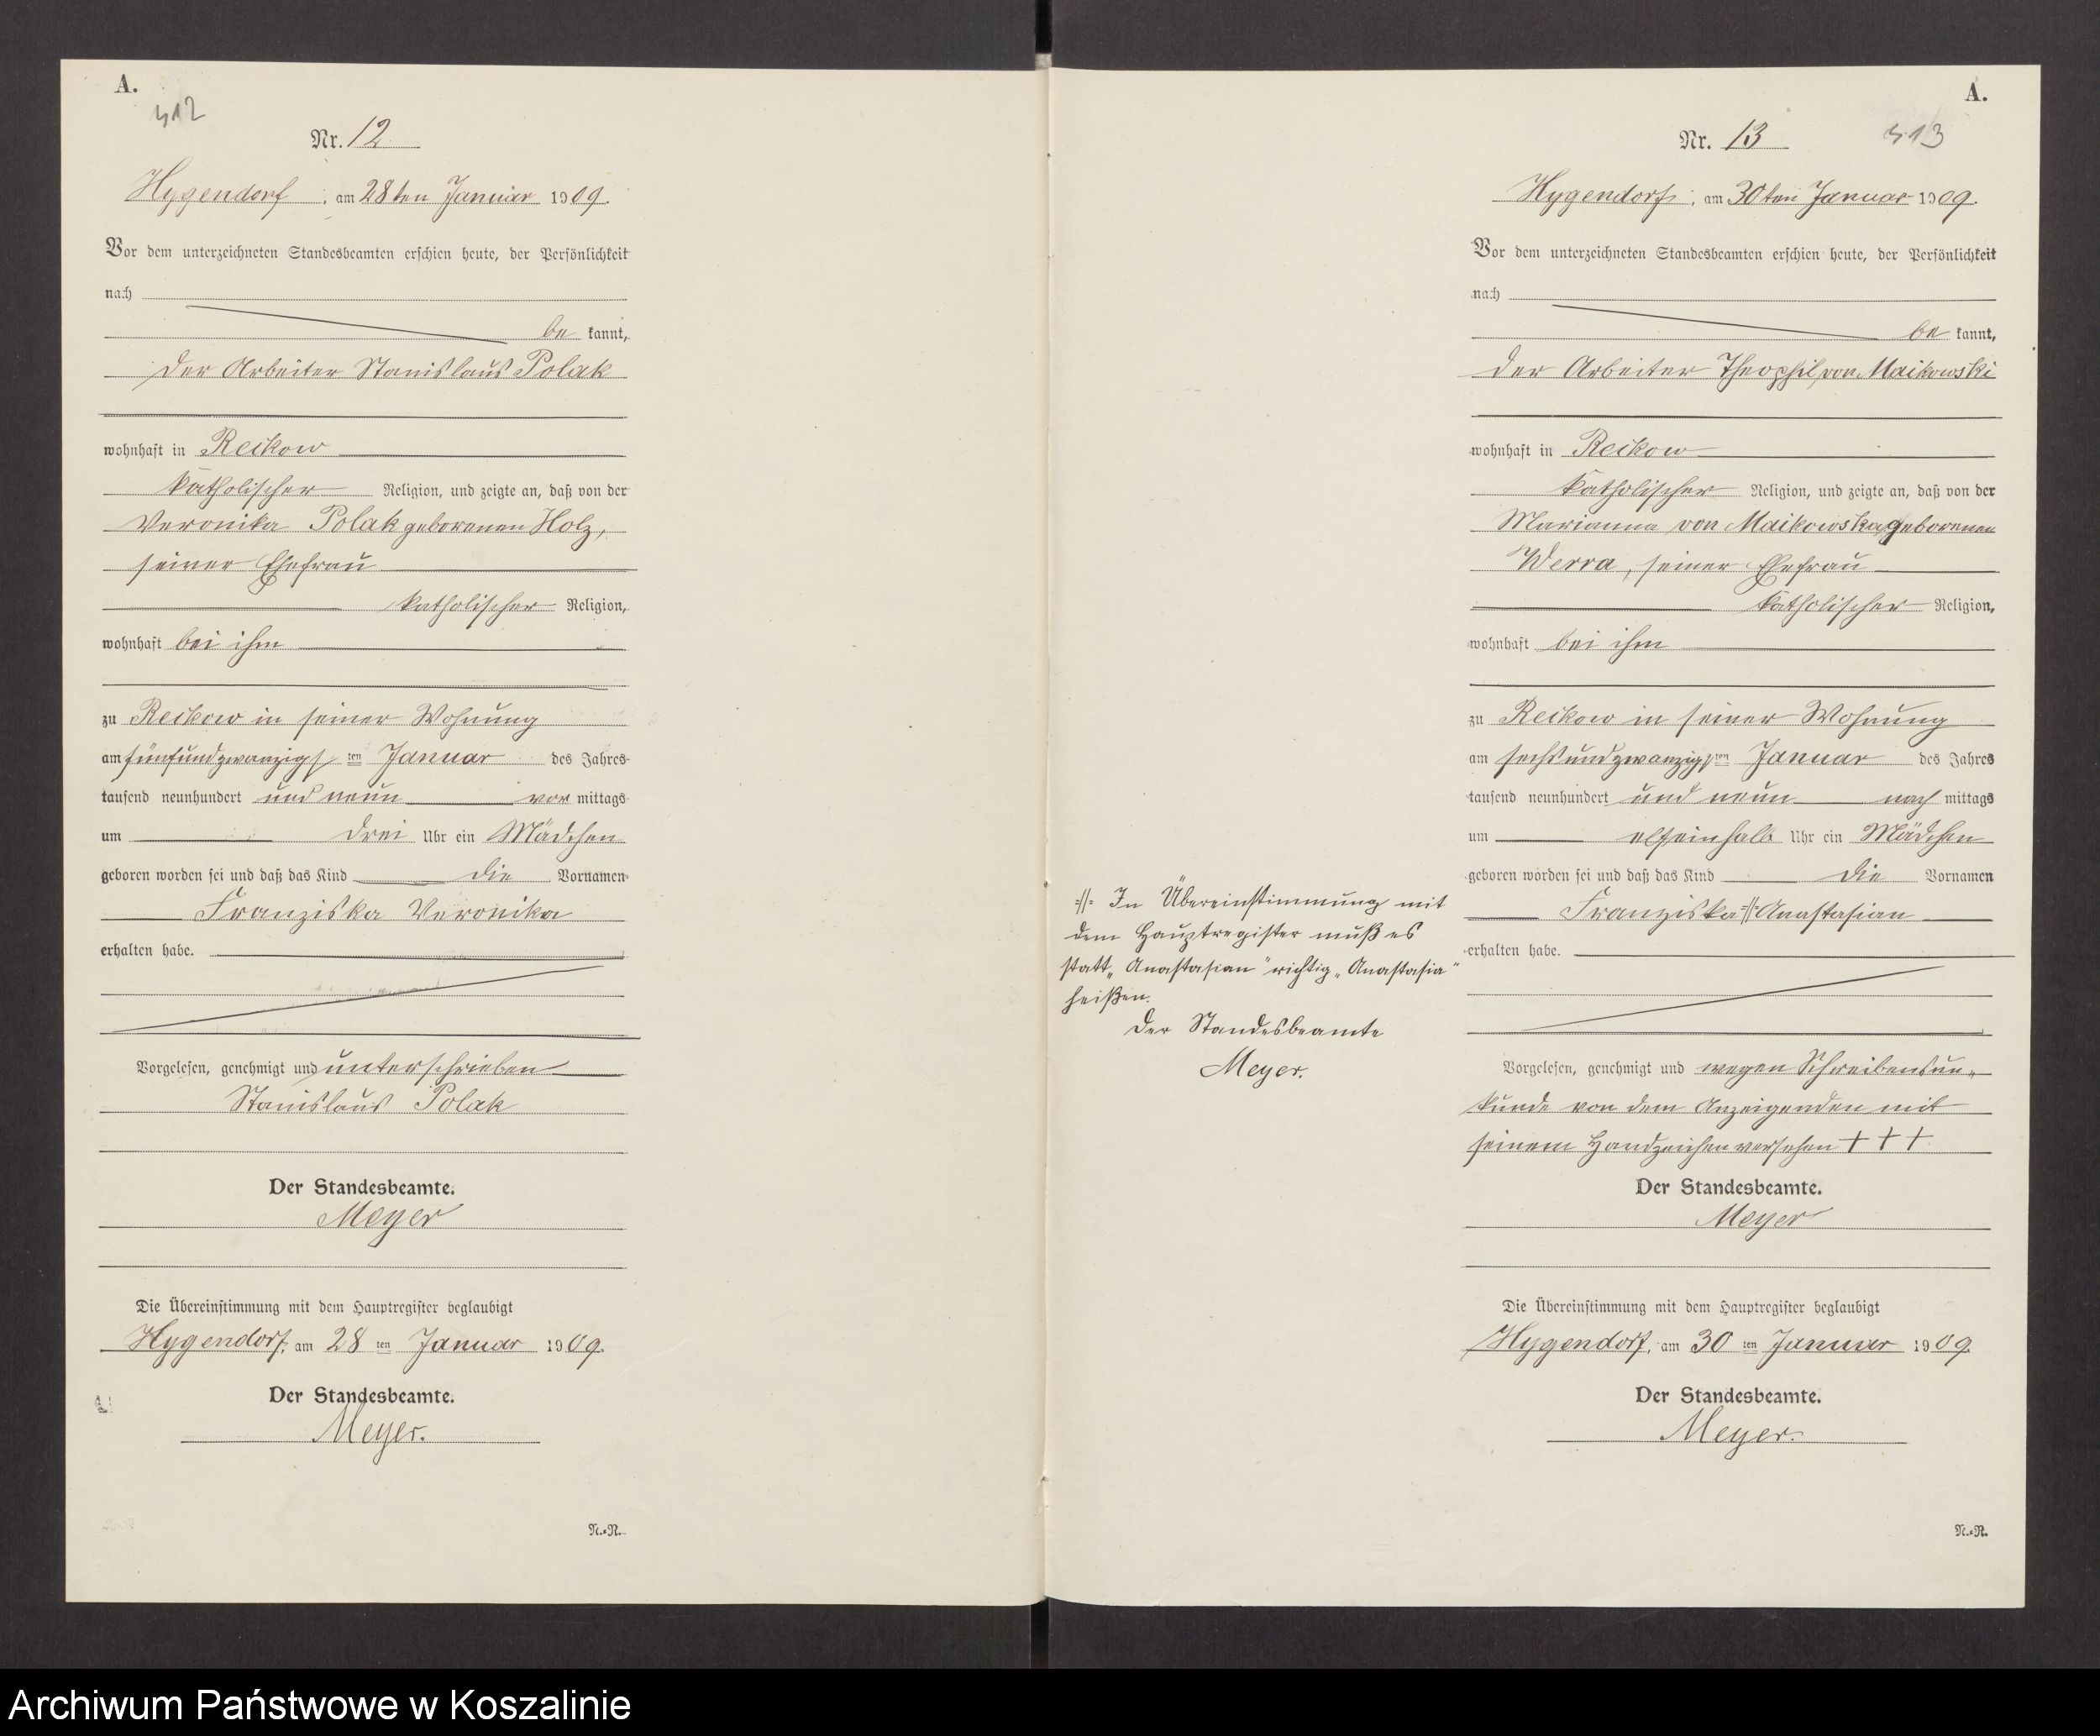 A.
412
Nr. 12
Hygendorf, am 28ten Januar 1909.
Vor dem unterzeichneten Standesbeamten erschien heute, der Persönlichkeit
nach
be kannt,
der Arbeiter Stanislaus Polak
wohnhaft in Reckow
katholischer Religion, und zeigte an, daß von der
Veronika Polak geborenen Holz,
seiner Ehefrau
katholischer Religion,
wohnhaft bei ihm
zu Reckow in seiner Wohnung
am fünfundzwanzigsten Januar des Jahres
tausend neunhundert und neun vor mittags
um drei Uhr ein Mädchen
geboren worden sei und daß das Kind die Vornamen
Franziska Veronika
erhalten habe.
Vorgelesen, genehmigt und unterschrieben
Stanislaus Polak
Der Standesbeamte.
Meyer
Die Übereinstimmung mit dem Hauptregister beglaubigt
Hygendorf, am 28 ten Januar 1909.
Der Standesbeamte.
Meyer.
N.=R.
A.
413
Nr. 13
Hygendorf, am 30ten Januar 1909.
Vor dem unterzeichneten Standesbeamten erschien heute, der Persönlichkeit
nach
be kannt,
der Arbeiter Theophil von Maikowski
wohnhaft in Reckow
katholischer Religion, und zeigte an, daß von der
Marianna von Maikowska geborenen
Werra, seiner Ehefrau
katholischer Religion,
wohnhaft bei ihm
zu Reckow in seiner Wohnung
am sechsundzwanzigsten Januar des Jahres
tausend neunhundert und neun nach mittags
um elfeinhalb Uhr ein Mädchen
geboren worden sei und daß das Kind die Vornamen
Franziska =//= Anastasian
erhalten habe.
=//= In Übereinstimmung mit
dem Hauptregister muß es
statt „Anastasian" richtig „Anastasia"
heißen.
Der Standesbeamte
Meyer.
Vorgelesen, genehmigt und wegen Schreibensun-
kunde von dem Anzeigenden mit
seinem Handzeichen versehen + + +
Der Standesbeamte.
Meyer
Die Übereinstimmung mit dem Hauptregister beglaubigt
Hygendorf, am 30 ten Januar 1909.
Der Standesbeamte.
Meyer.
N.=R.
Archiwum Państwowe w Koszalinie